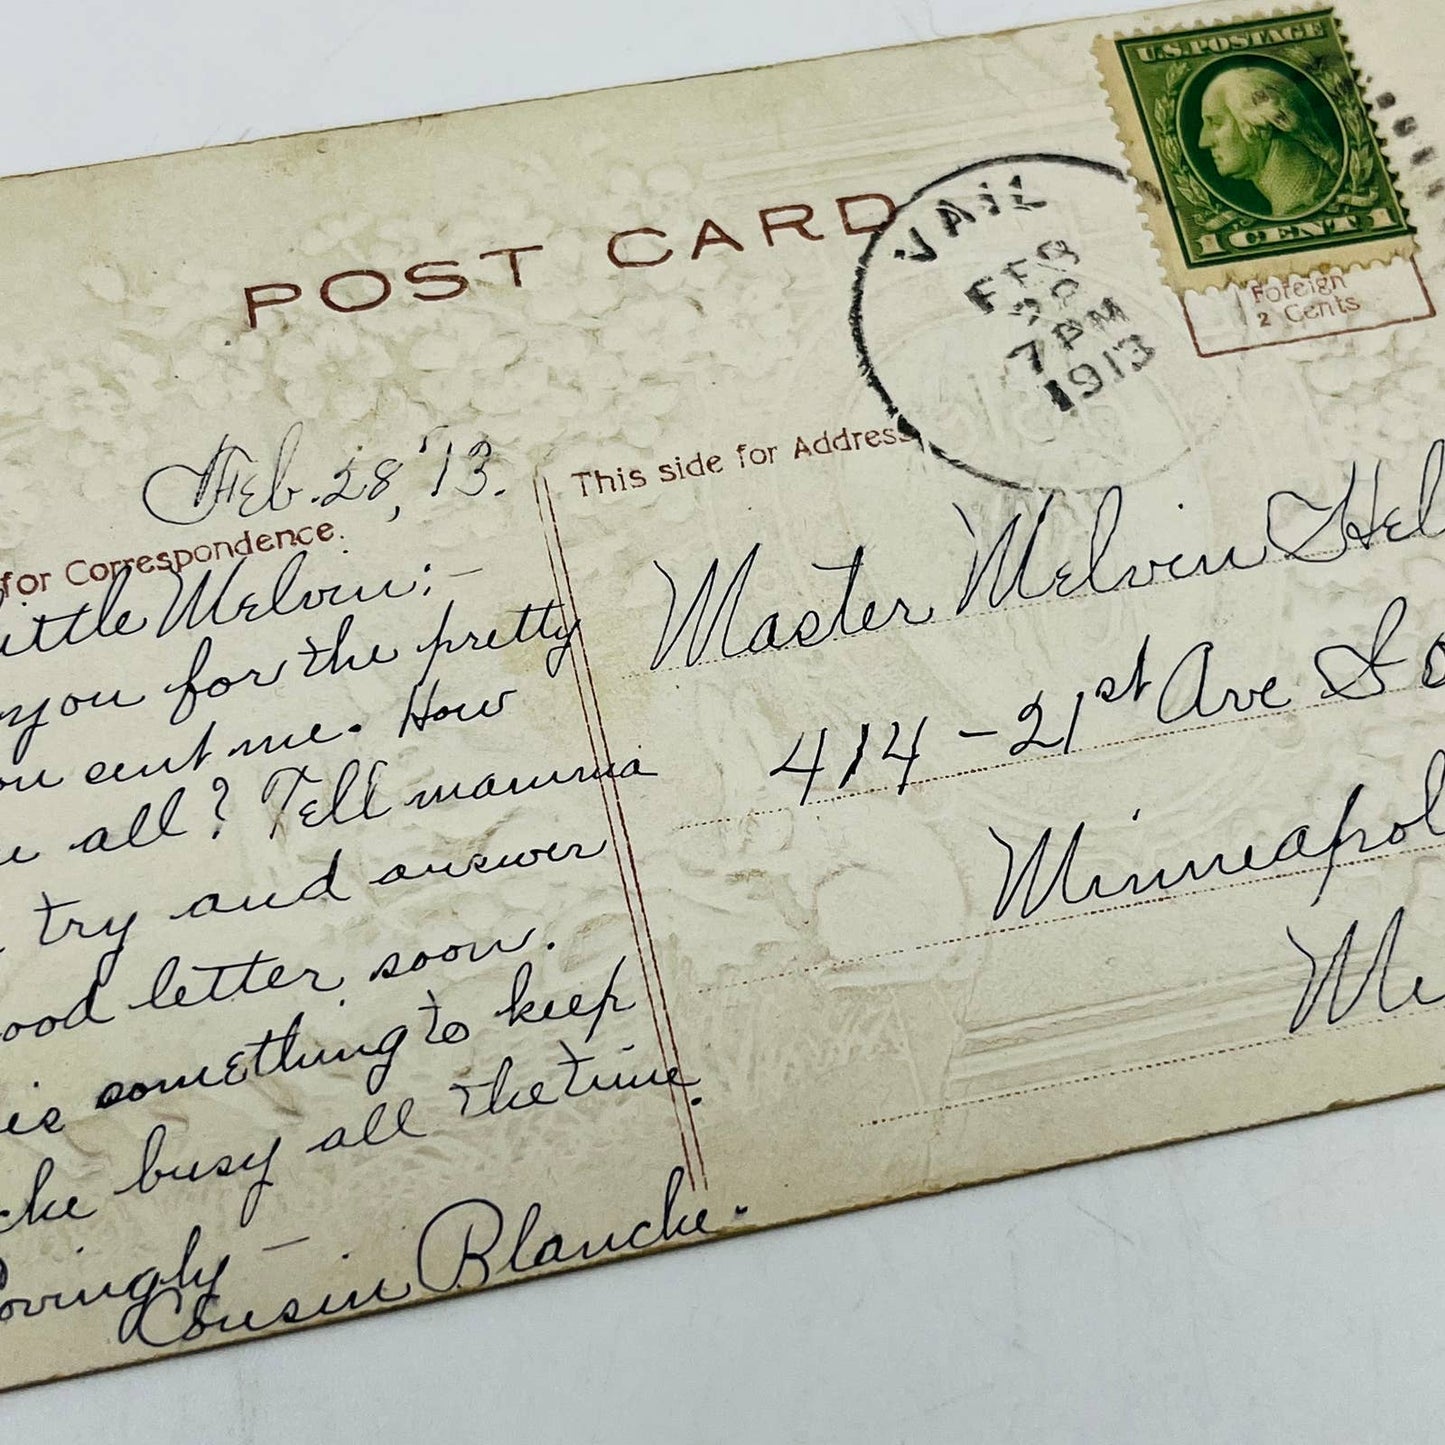 U.S. POSTAGE
1 CENT 1
Foreign
2 Cents
POST CARD
VAIL
FEB
28
7 PM
1913
Feb. 28, '13.
for Correspondence.
This side for Address
Little Melvin:-
you for the pretty
you sent me. How
all? Tell mamma
try and answer
good letter soon.
is something to keep
busy all the time.
Lovingly -
Cousin Blanche.
Master Melvin Hel
414 - 21st Ave So
Minneapol
Mi